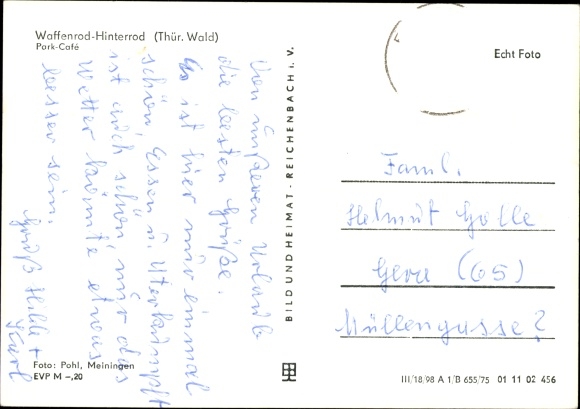 Waffenrod-Hinterrod (Thür. Wald)
Park-Café
Von unseren Urlaub
die besten Grüße.
Es ist hier nur einmal
schön, Essen u. Unterkunpft
ist auch schön, nur das
Wetter könnte etwas
besser sein.
Gruß Hilde +
Karl
Foto: Pohl, Meiningen
EVP M –,20
BILD UND HEIMAT · REICHENBACH i. V.
Echt Foto
Faml.
Helmut Golle
Gera (65)
Müllengasse 2
III/18/98 A 1/B 655/75 01 11 02 456